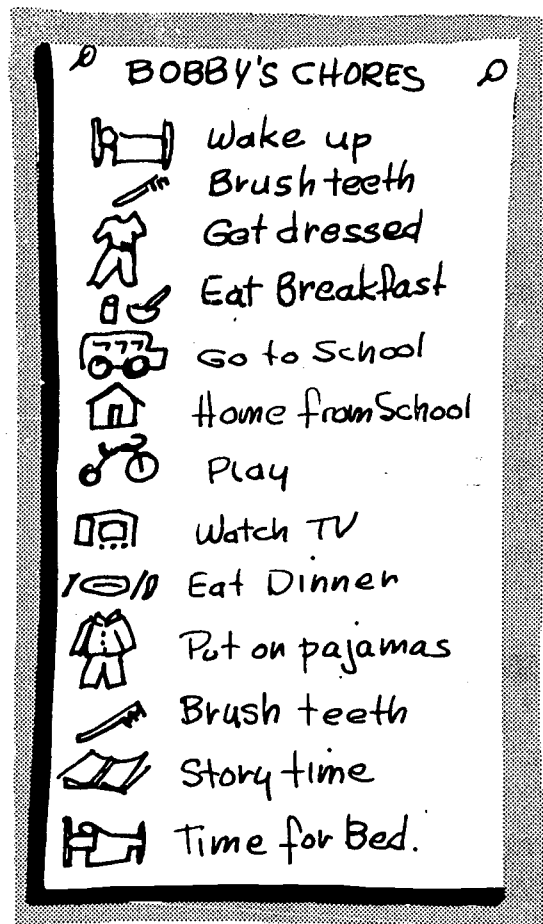 BOBBY'S CHORES
Wake up
Brush teeth
Get dressed
Eat Breakfast
Go to School
Home from School
Play
Watch TV
Eat Dinner
Put on pajamas
Brush teeth
Story time
Time for Bed.